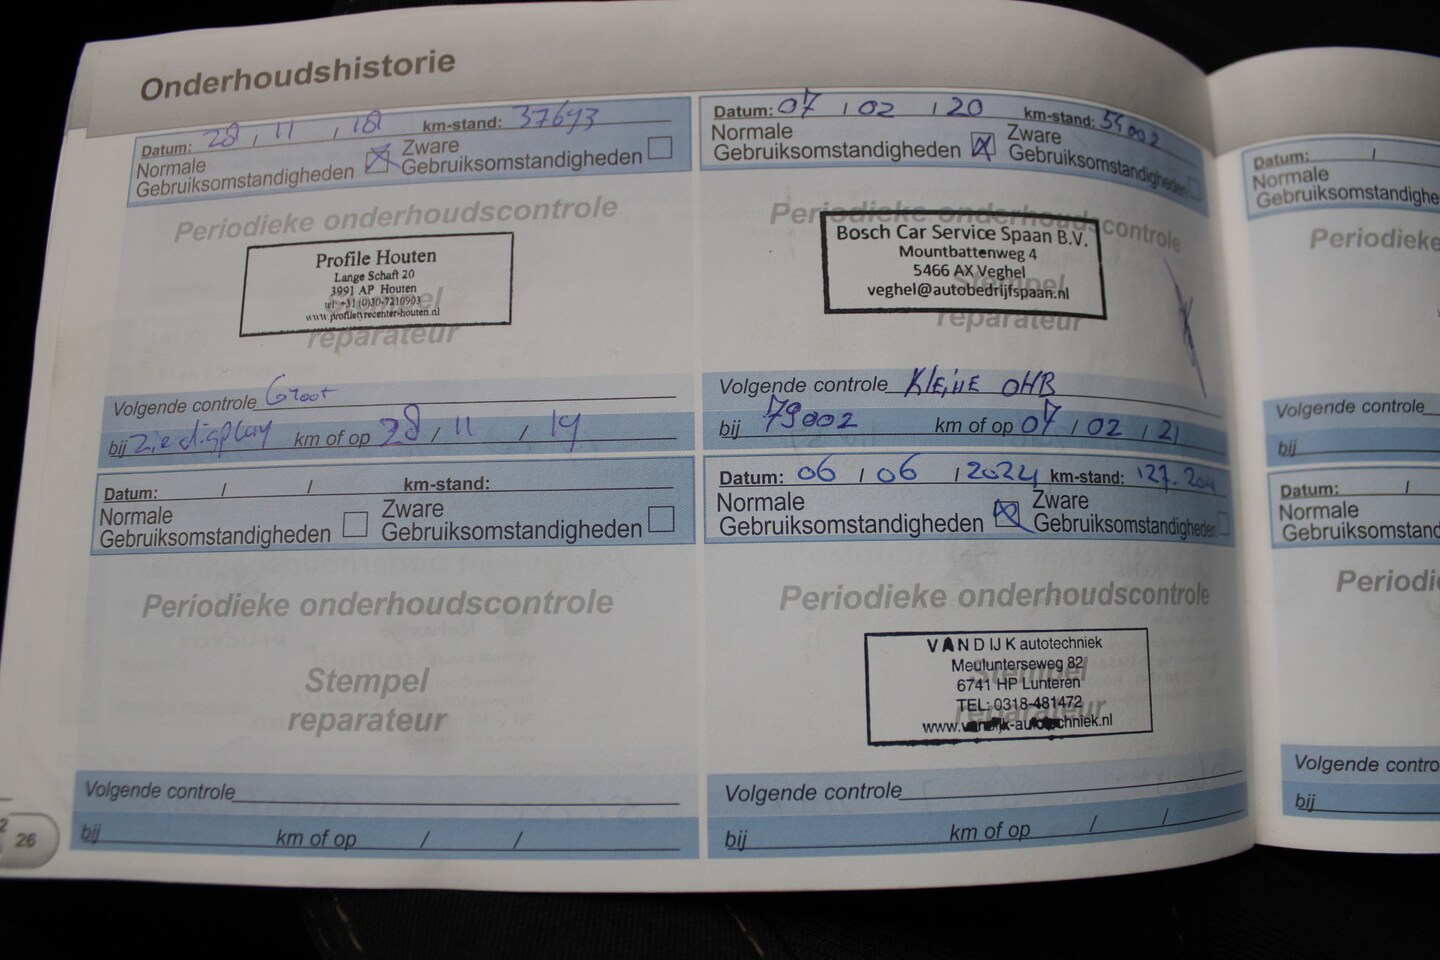 Onderhoudshistorie
Datum: 28 / 11 / 18 km-stand: 37693
Normale Gebruiksomstandigheden
Zware Gebruiksomstandigheden
Periodieke onderhoudscontrole
Profile Houten
Lange Schaft 20
3991 AP Houten
tel: +31 (0)30-7210903
www.profiletyrecenter-houten.nl
Stempel
reparateur
Volgende controle Groot
bij Zie display km of op 28 / 11 / 19
Datum: 07 / 02 / 20 km-stand: 54002
Normale Gebruiksomstandigheden
Zware Gebruiksomstandigheden
Periodieke onderhoudscontrole
Bosch Car Service Spaan B.V.
Mountbattenweg 4
5466 AX Veghel
veghel@autobedrijfspaan.nl
Stempel
reparateur
Volgende controle Kleine OHB
bij 79002 km of op 07 / 02 / 21
Datum: / / km-stand:
Normale Gebruiksomstandigheden
Zware Gebruiksomstandigheden
Periodieke onderhoudscontrole
Stempel
reparateur
Volgende controle
bij km of op / /
Datum: 06 / 06 / 2024 km-stand: 127.204
Normale Gebruiksomstandigheden
Zware Gebruiksomstandigheden
Periodieke onderhoudscontrole
VAN DIJK autotechniek
Meulunterseweg 82
6741 HP Lunteren
TEL: 0318-481472
www.vandijk-autotechniek.nl
Stempel
reparateur
Volgende controle
bij km of op / /
26
Datum: /
Normale
Periodieke
Volgende controle
bij
Datum: /
Normale
bij